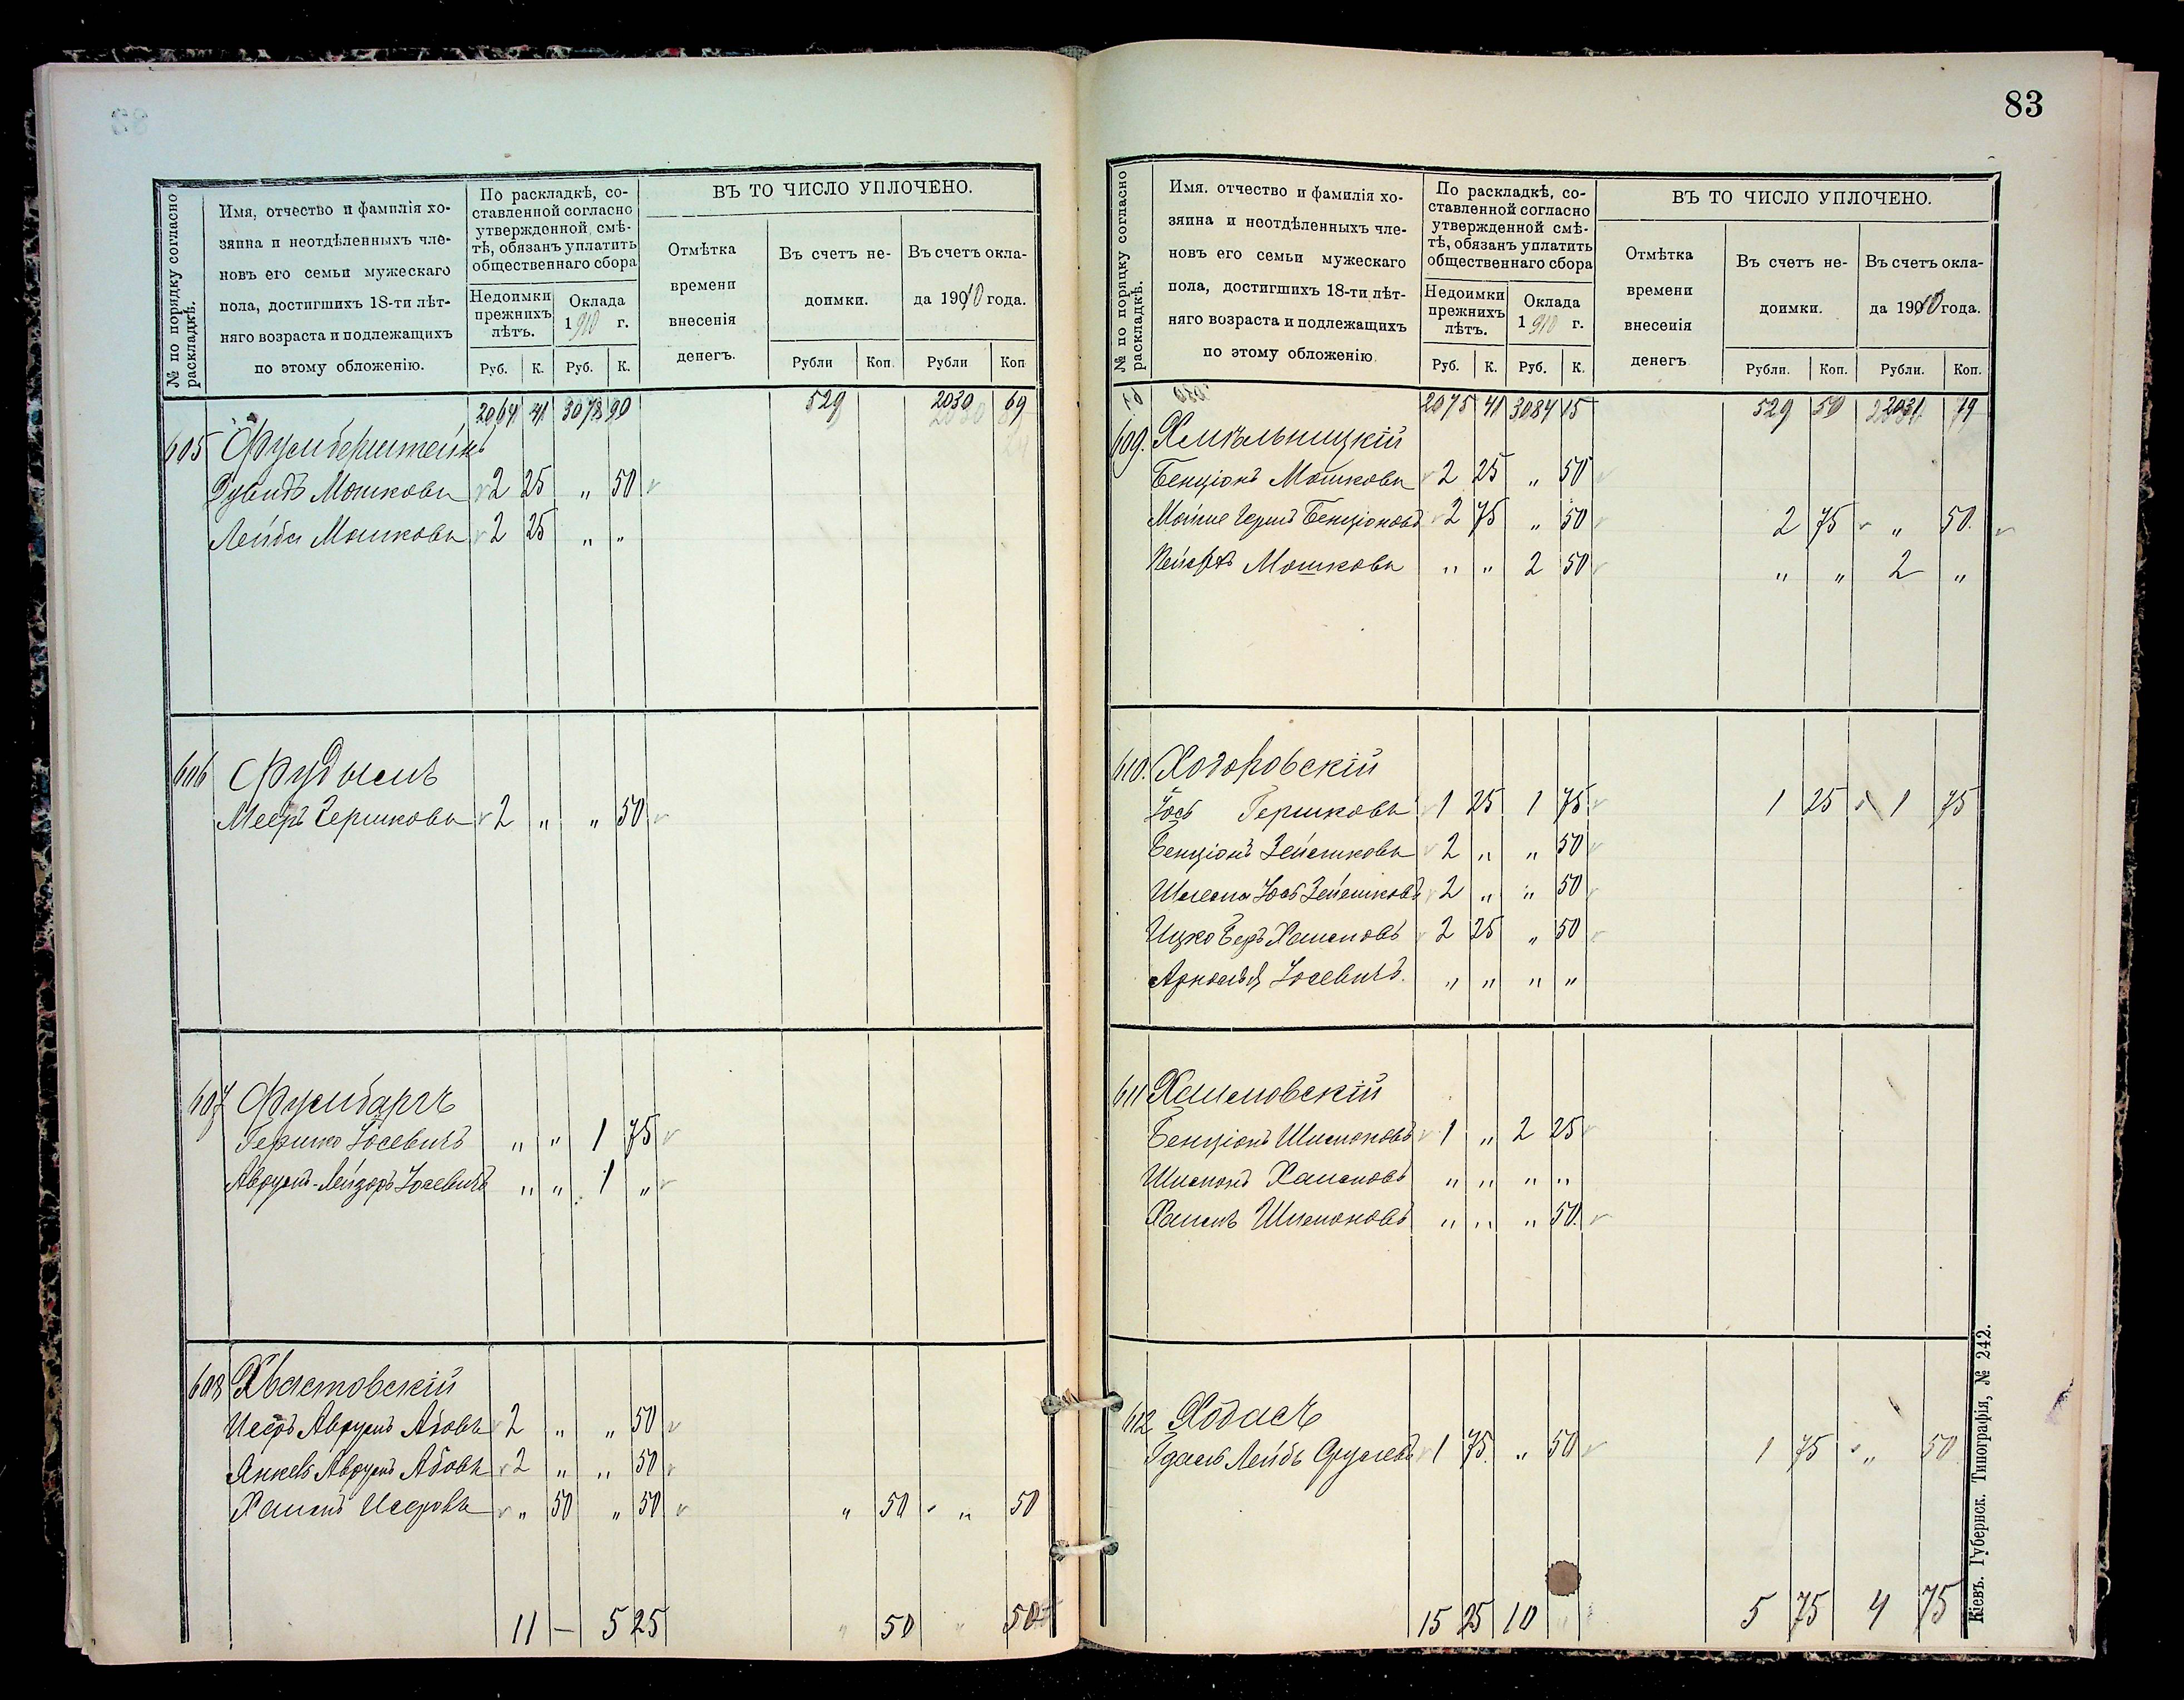 № по порядку согласно раскладкѣ.
Имя, отчество и фамилія хо-
зяина и неотдѣленныхъ чле-
новъ его семьи мужескаго
пола, достигшихъ 18-ти лѣт-
няго возраста и подлежащихъ
по этому обложенію.
По раскладкѣ, со-
ставленной согласно
утвержденной смѣ-
тѣ, обязанъ уплатить
общественнаго сбора
Недоимки
прежнихъ
лѣтъ.
Оклада
1910 г.
Руб. К. Руб. К.
ВЪ ТО ЧИСЛО УПЛОЧЕНО.
Отмѣтка
времени
внесенія
денегъ.
Въ счетъ не-
доимки.
Въ счетъ окла-
да 1910 года.
Рубли Коп. Рубли Коп
2064 41 3078 90 529 2030 69
605
Дувидъ Мошковъ 2 25 " 50
Лейба Мошковъ 2 25 " "
606 Фудымъ
Мееръ Гершковъ 2 " " 50
607
Гершко Іосевичъ " " 1 75
Аврумъ-Лейзоръ Іосевичъ " " 1 "
608 Хвастовскій
Исеръ Аврумъ Абовъ 2 " " 50
Янкель Аврумъ Абовъ 2 " " 50
Хаимъ Исеровъ " 50 " 50 " 50 " 50
11 — 5 25 " 50 " 50
83
№ по порядку согласно раскладкѣ.
Имя. отчество и фамилія хо-
зяина и неотдѣленныхъ чле-
новъ его семьи мужескаго
пола, достигшихъ 18-ти лѣт-
няго возраста и подлежащихъ
по этому обложенію
По раскладкѣ, со-
ставленной согласно
утвержденной смѣ-
тѣ, обязанъ уплатить
общественнаго сбора
Недоимки
прежнихъ
лѣтъ.
Оклада
1910 г.
Руб. К. Руб. К.
ВЪ ТО ЧИСЛО УПЛОЧЕНО.
Отмѣтка
времени
внесенія
денегъ
Въ счетъ не-
доимки.
Въ счетъ окла-
да 1910 года.
Рубли. Коп. Рубли. Коп.
2075 41 3084 15 529 50 2031 19
609. Хмѣльницкій
Бенціонъ Мошковъ 2 25 " 50
Мойше Герш Бенціоновъ 2 75 " 50 2 75 " 50.
Мошковъ " " 2 50 " " 2 "
610. Ходоровскій
Іось Гершковъ 1 25 1 75 1 25 1 75
Бенціонъ 2 " " 50
Іось 2 " " 50
Ицко Беръ Хаимовъ 2 25 " 50
Іосевичъ. " " " "
611
Бенціонъ Шимоновъ 1 " 2 25
Шимонъ Хаимовъ " " " "
Хаимъ Шимоновъ " " " 50.
612 Ходасъ
Лейбъ Сруловъ 1 75. " 50 1 75 " 50
15 25 10 " 5 75 4 75
Кіевъ. Губернск. Типографія, № 242.